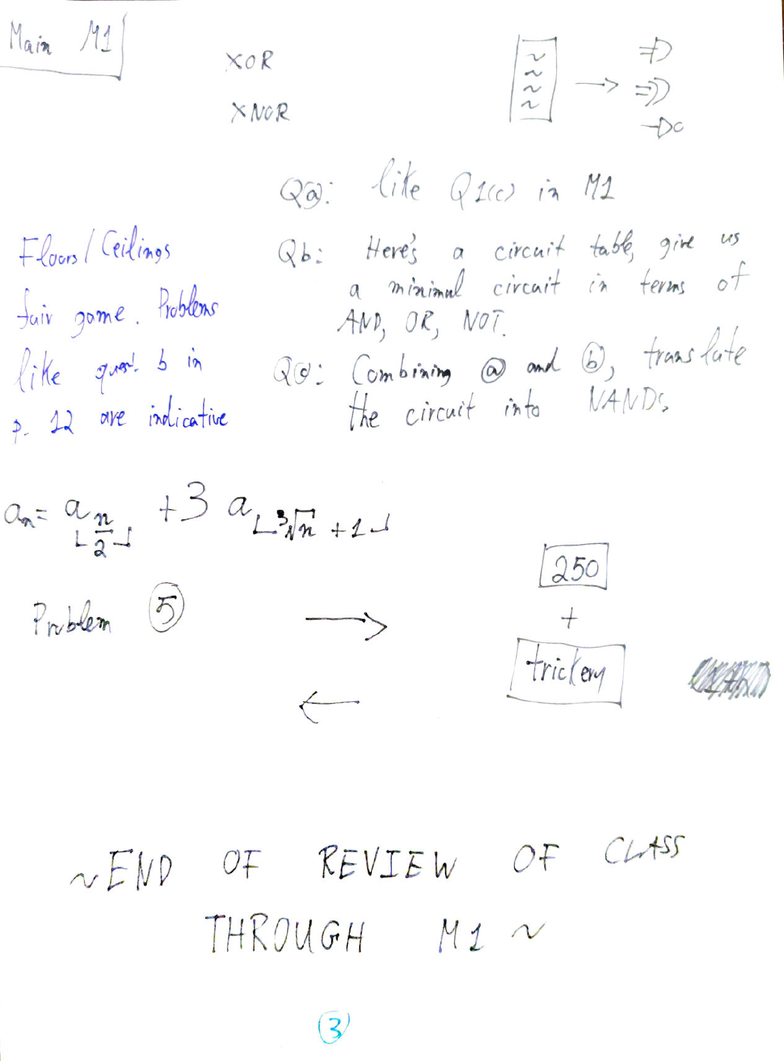 Main M1
XOR
XNOR
~
~
~
~
Qⓐ: like Q1(c) in M1
Qb: Here's a circuit table, give us
a minimal circuit in terms of
AND, OR, NOT.
Qⓒ: Combining ⓐ and ⓑ, translate
the circuit into NANDs.
Floors/Ceilings
fair game. Problems
like quest. b in
p. 12 are indicative
aₙ = a⌊n/2⌋ + 3 a⌊∛n + 1⌋
Problem ⑤
250
+
trickery
~END OF REVIEW OF CLASS
THROUGH M1 ~
③